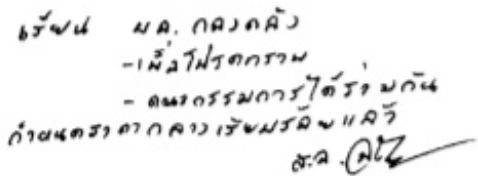 เรียน ผอ. กองคลัง
-เพื่อโปรดทราบ
- คณะกรรมการได้ร่วมกัน
กำหนดราคากลางเรียบร้อยแล้ว
ส.อ.